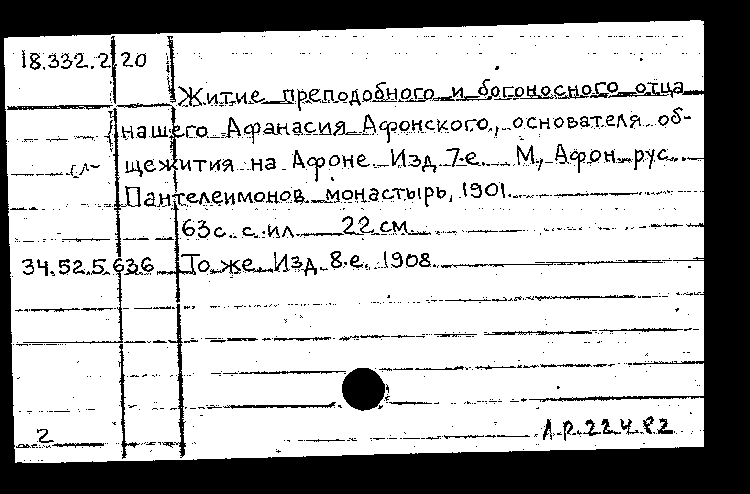 18.332.2.20
Житие преподобного и богоносного отца
нашего Афанасия Афонского, основателя об-
щежития на Афоне. Изд. 7-е. М., Афон. рус.
Пантелеимонов монастырь, 1901.
63 с. с ил. 22 см.
34.52.5.636 То же. Изд. 8-е. 1908.
2